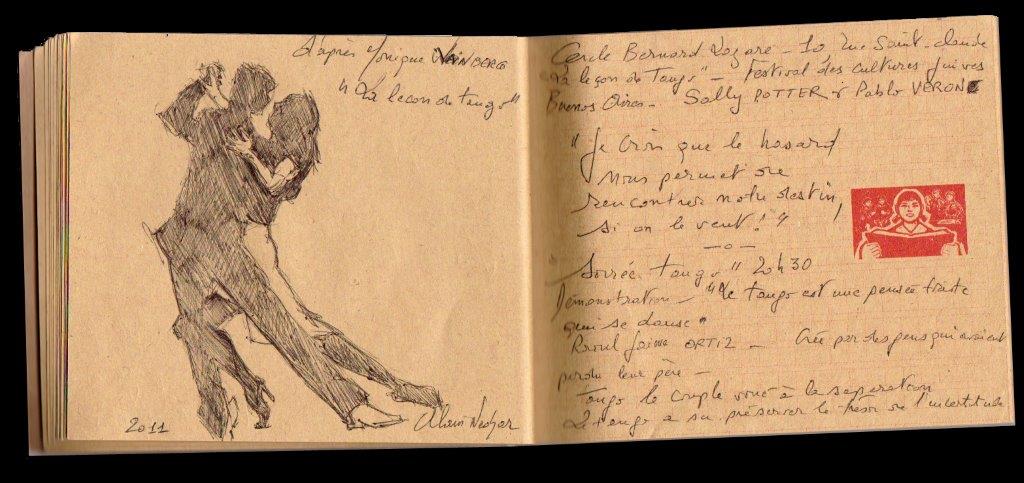 d'après Monique WAINBERG
"La leçon de tango"
2011
Alain Nedjar
Cercle Bernard Lazare - 10, rue Saint-Claude
"La leçon de Tango" - Festival des cultures juives
Buenos Aires - Sally POTTER & Pablo VERON
"Je crois que le hasard
nous permet de
rencontrer notre destin,
si on le veut!"
-o-
Soirée "Tango" 20h30
Démonstration - "Le tango est une pensée triste
qui se danse"
Raoul Jaime ORTIZ - Crée par des gens qui avaient
perdu leur père -
Tango le couple voué à la séparation
Le tango a su préserver le trésor de l'incertitude